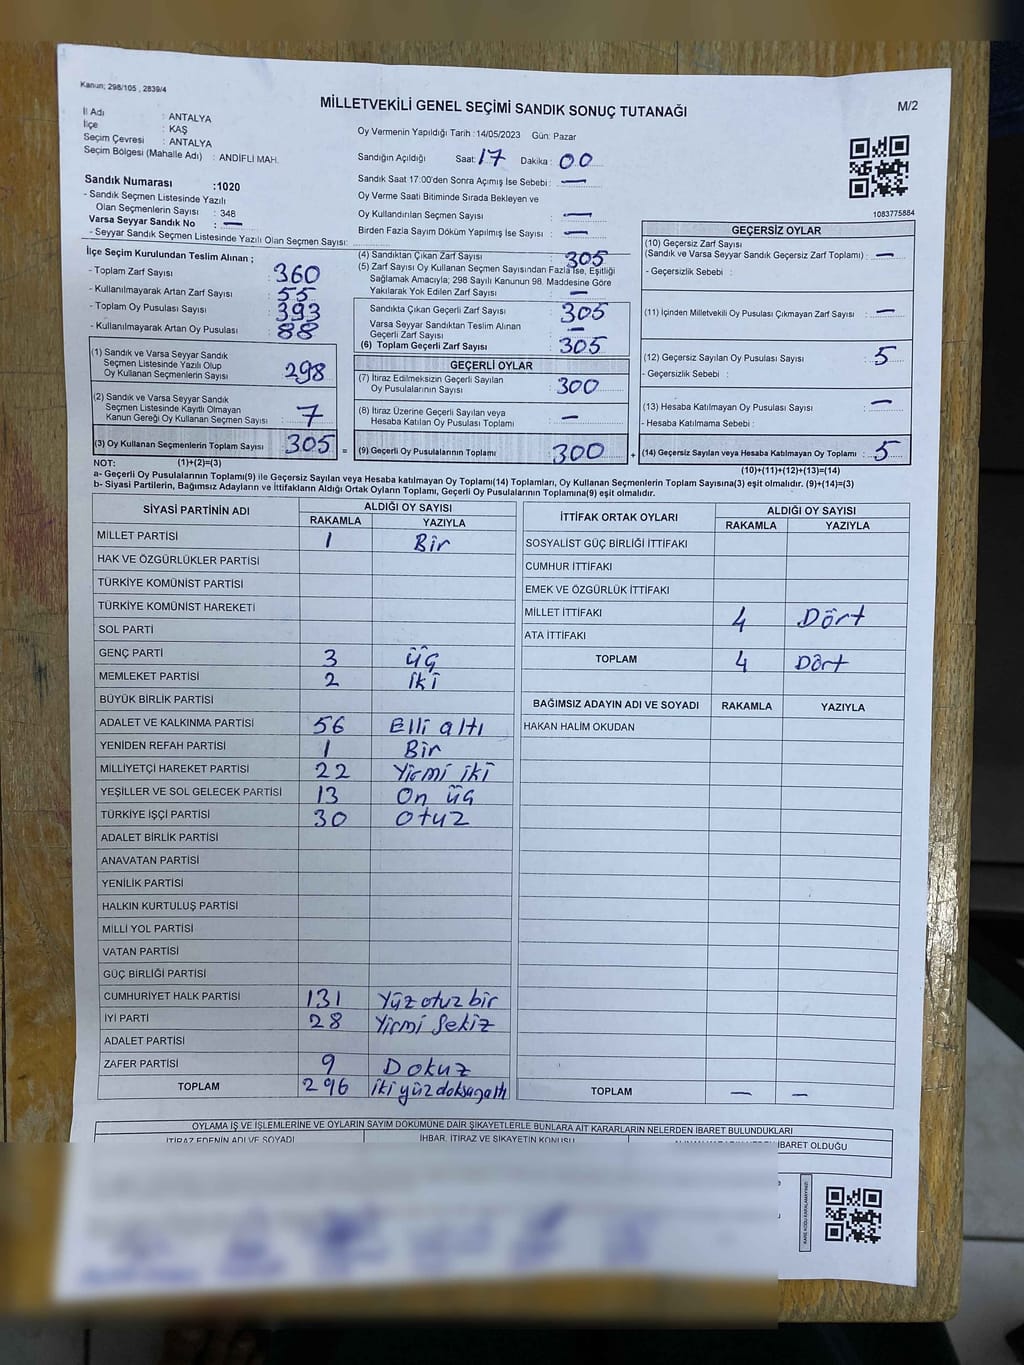 Kanun; 298/105 , 2839/4
MİLLETVEKİLİ GENEL SEÇİMİ SANDIK SONUÇ TUTANAĞI
M/2
İl Adı : ANTALYA
İlçe : KAŞ
Seçim Çevresi : ANTALYA
Seçim Bölgesi (Mahalle Adı) : ANDİFLİ MAH.
Sandık Numarası :1020
- Sandık Seçmen Listesinde Yazılı
Olan Seçmenlerin Sayısı : 348
Varsa Seyyar Sandık No : —
- Seyyar Sandık Seçmen Listesinde Yazılı Olan Seçmen Sayısı:
Oy Vermenin Yapıldığı Tarih : 14/05/2023 Gün: Pazar
Sandığın Açıldığı Saat: 17 Dakika : 00
Sandık Saat 17:00'den Sonra Açımış İse Sebebi : —
Oy Verme Saati Bitiminde Sırada Bekleyen ve
Oy Kullandırılan Seçmen Sayısı : —
Birden Fazla Sayım Döküm Yapılmış İse Sayısı : —
1083775884
İlçe Seçim Kurulundan Teslim Alınan ;
- Toplam Zarf Sayısı : 360
- Kullanılmayarak Artan Zarf Sayısı : 55
- Toplam Oy Pusulası Sayısı : 393
- Kullanılmayarak Artan Oy Pusulası : 88
(1) Sandık ve Varsa Seyyar Sandık
Seçmen Listesinde Yazılı Olup
Oy Kullanan Seçmenlerin Sayısı : 298
(2) Sandık ve Varsa Seyyar Sandık
Seçmen Listesinde Kayıtlı Olmayan
Kanun Gereği Oy Kullanan Seçmen Sayısı : 7
(3) Oy Kullanan Seçmenlerin Toplam Sayısı : 305 =
(4) Sandıktan Çıkan Zarf Sayısı : 305
(5) Zarf Sayısı Oy Kullanan Seçmen Sayısından Fazla İse, Eşitliği
Sağlamak Amacıyla; 298 Sayılı Kanunun 98. Maddesine Göre
Yakılarak Yok Edilen Zarf Sayısı : —
Sandıkta Çıkan Geçerli Zarf Sayısı : 305
Varsa Seyyar Sandıktan Teslim Alınan
Geçerli Zarf Sayısı : —
(6) Toplam Geçerli Zarf Sayısı : 305
GEÇERLİ OYLAR
(7) İtiraz Edilmeksizin Geçerli Sayılan
Oy Pusulalarının Sayısı : 300
(8) İtiraz Üzerine Geçerli Sayılan veya
Hesaba Katılan Oy Pusulası Toplamı : —
(9) Geçerli Oy Pusulalarının Toplamı : 300 +
GEÇERSİZ OYLAR
(10) Geçersiz Zarf Sayısı
(Sandık ve Varsa Seyyar Sandık Geçersiz Zarf Toplamı) : —
- Geçersizlik Sebebi :
(11) İçinden Milletvekili Oy Pusulası Çıkmayan Zarf Sayısı : —
(12) Geçersiz Sayılan Oy Pusulası Sayısı : 5
- Geçersizlik Sebebi :
(13) Hesaba Katılmayan Oy Pusulası Sayısı : —
- Hesaba Katılmama Sebebi :
(14) Geçersiz Sayılan veya Hesaba Katılmayan Oy Toplamı : 5
NOT: (1)+(2)=(3)
(10)+(11)+(12)+(13)=(14)
a- Geçerli Oy Pusulalarının Toplamı(9) ile Geçersiz Sayılan veya Hesaba katılmayan Oy Toplamı(14) Toplamları, Oy Kullanan Seçmenlerin Toplam Sayısına(3) eşit olmalıdır. (9)+(14)=(3)
b- Siyasi Partilerin, Bağımsız Adayların ve İttifakların Aldığı Ortak Oyların Toplamı, Geçerli Oy Pusulalarının Toplamına(9) eşit olmalıdır.
SİYASİ PARTİNİN ADI ALDIĞI OY SAYISI
RAKAMLA YAZIYLA
MİLLET PARTİSİ 1 Bir
HAK VE ÖZGÜRLÜKLER PARTİSİ
TÜRKİYE KOMÜNİST PARTİSİ
TÜRKİYE KOMÜNİST HAREKETİ
SOL PARTİ
GENÇ PARTİ 3 üç
MEMLEKET PARTİSİ 2 iki
BÜYÜK BİRLİK PARTİSİ
ADALET VE KALKINMA PARTİSİ 56 Elli altı
YENİDEN REFAH PARTİSİ 1 Bir
MİLLİYETÇİ HAREKET PARTİSİ 22 Yirmi iki
YEŞİLLER VE SOL GELECEK PARTİSİ 13 On üç
TÜRKİYE İŞÇİ PARTİSİ 30 Otuz
ADALET BİRLİK PARTİSİ
ANAVATAN PARTİSİ
YENİLİK PARTİSİ
HALKIN KURTULUŞ PARTİSİ
MİLLİ YOL PARTİSİ
VATAN PARTİSİ
GÜÇ BİRLİĞİ PARTİSİ
CUMHURİYET HALK PARTİSİ 131 Yüz otuz bir
İYİ PARTİ 28 Yirmi Sekiz
ADALET PARTİSİ
ZAFER PARTİSİ 9 Dokuz
TOPLAM 296 iki yüz doksan altı
İTTİFAK ORTAK OYLARI ALDIĞI OY SAYISI
RAKAMLA YAZIYLA
SOSYALİST GÜÇ BİRLİĞİ İTTİFAKI
CUMHUR İTTİFAKI
EMEK VE ÖZGÜRLÜK İTTİFAKI
MİLLET İTTİFAKI 4 Dört
ATA İTTİFAKI
TOPLAM 4 Dört
BAĞIMSIZ ADAYIN ADI VE SOYADI RAKAMLA YAZIYLA
HAKAN HALİM OKUDAN
TOPLAM — —
OYLAMA İŞ VE İŞLEMLERİNE VE OYLARIN SAYIM DÖKÜMÜNE DAİR ŞİKAYETLERLE BUNLARA AİT KARARLARIN NELERDEN İBARET BULUNDUKLARI
İTİRAZ EDENİN ADI VE SOYADI İHBAR, İTİRAZ VE ŞİKAYETİN KONUSU İBARET OLDUĞU